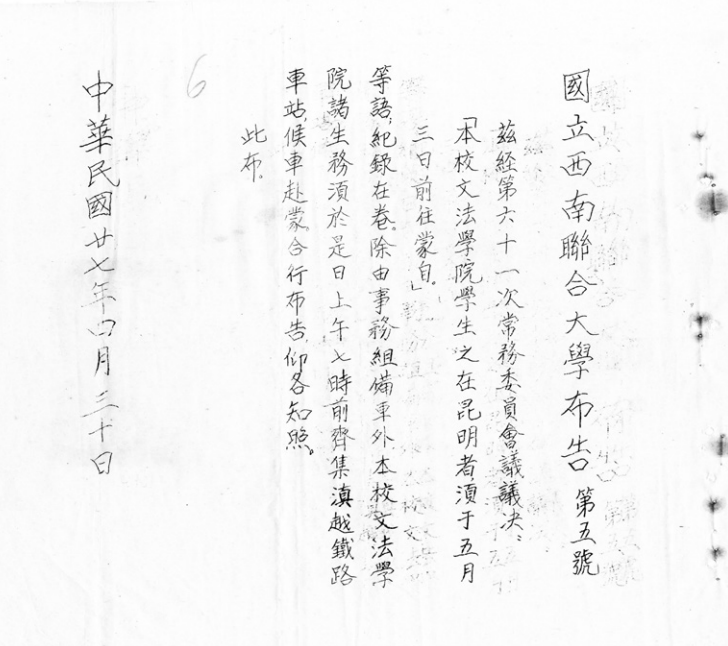 國立西南聯合大學布告 第五號
茲經第六十一次常務委員會議議决：
「本校文法學院學生之在昆明者，須于五月
三日前往蒙自。」
等語，紀錄在卷。除由事務組備車外，本校文法學
院諸生務須於是日上午七時前齊集滇越鐵路
車站，候車赴蒙。合行布告，仰各知照。
此布。
6
中華民國廿七年四月三十日